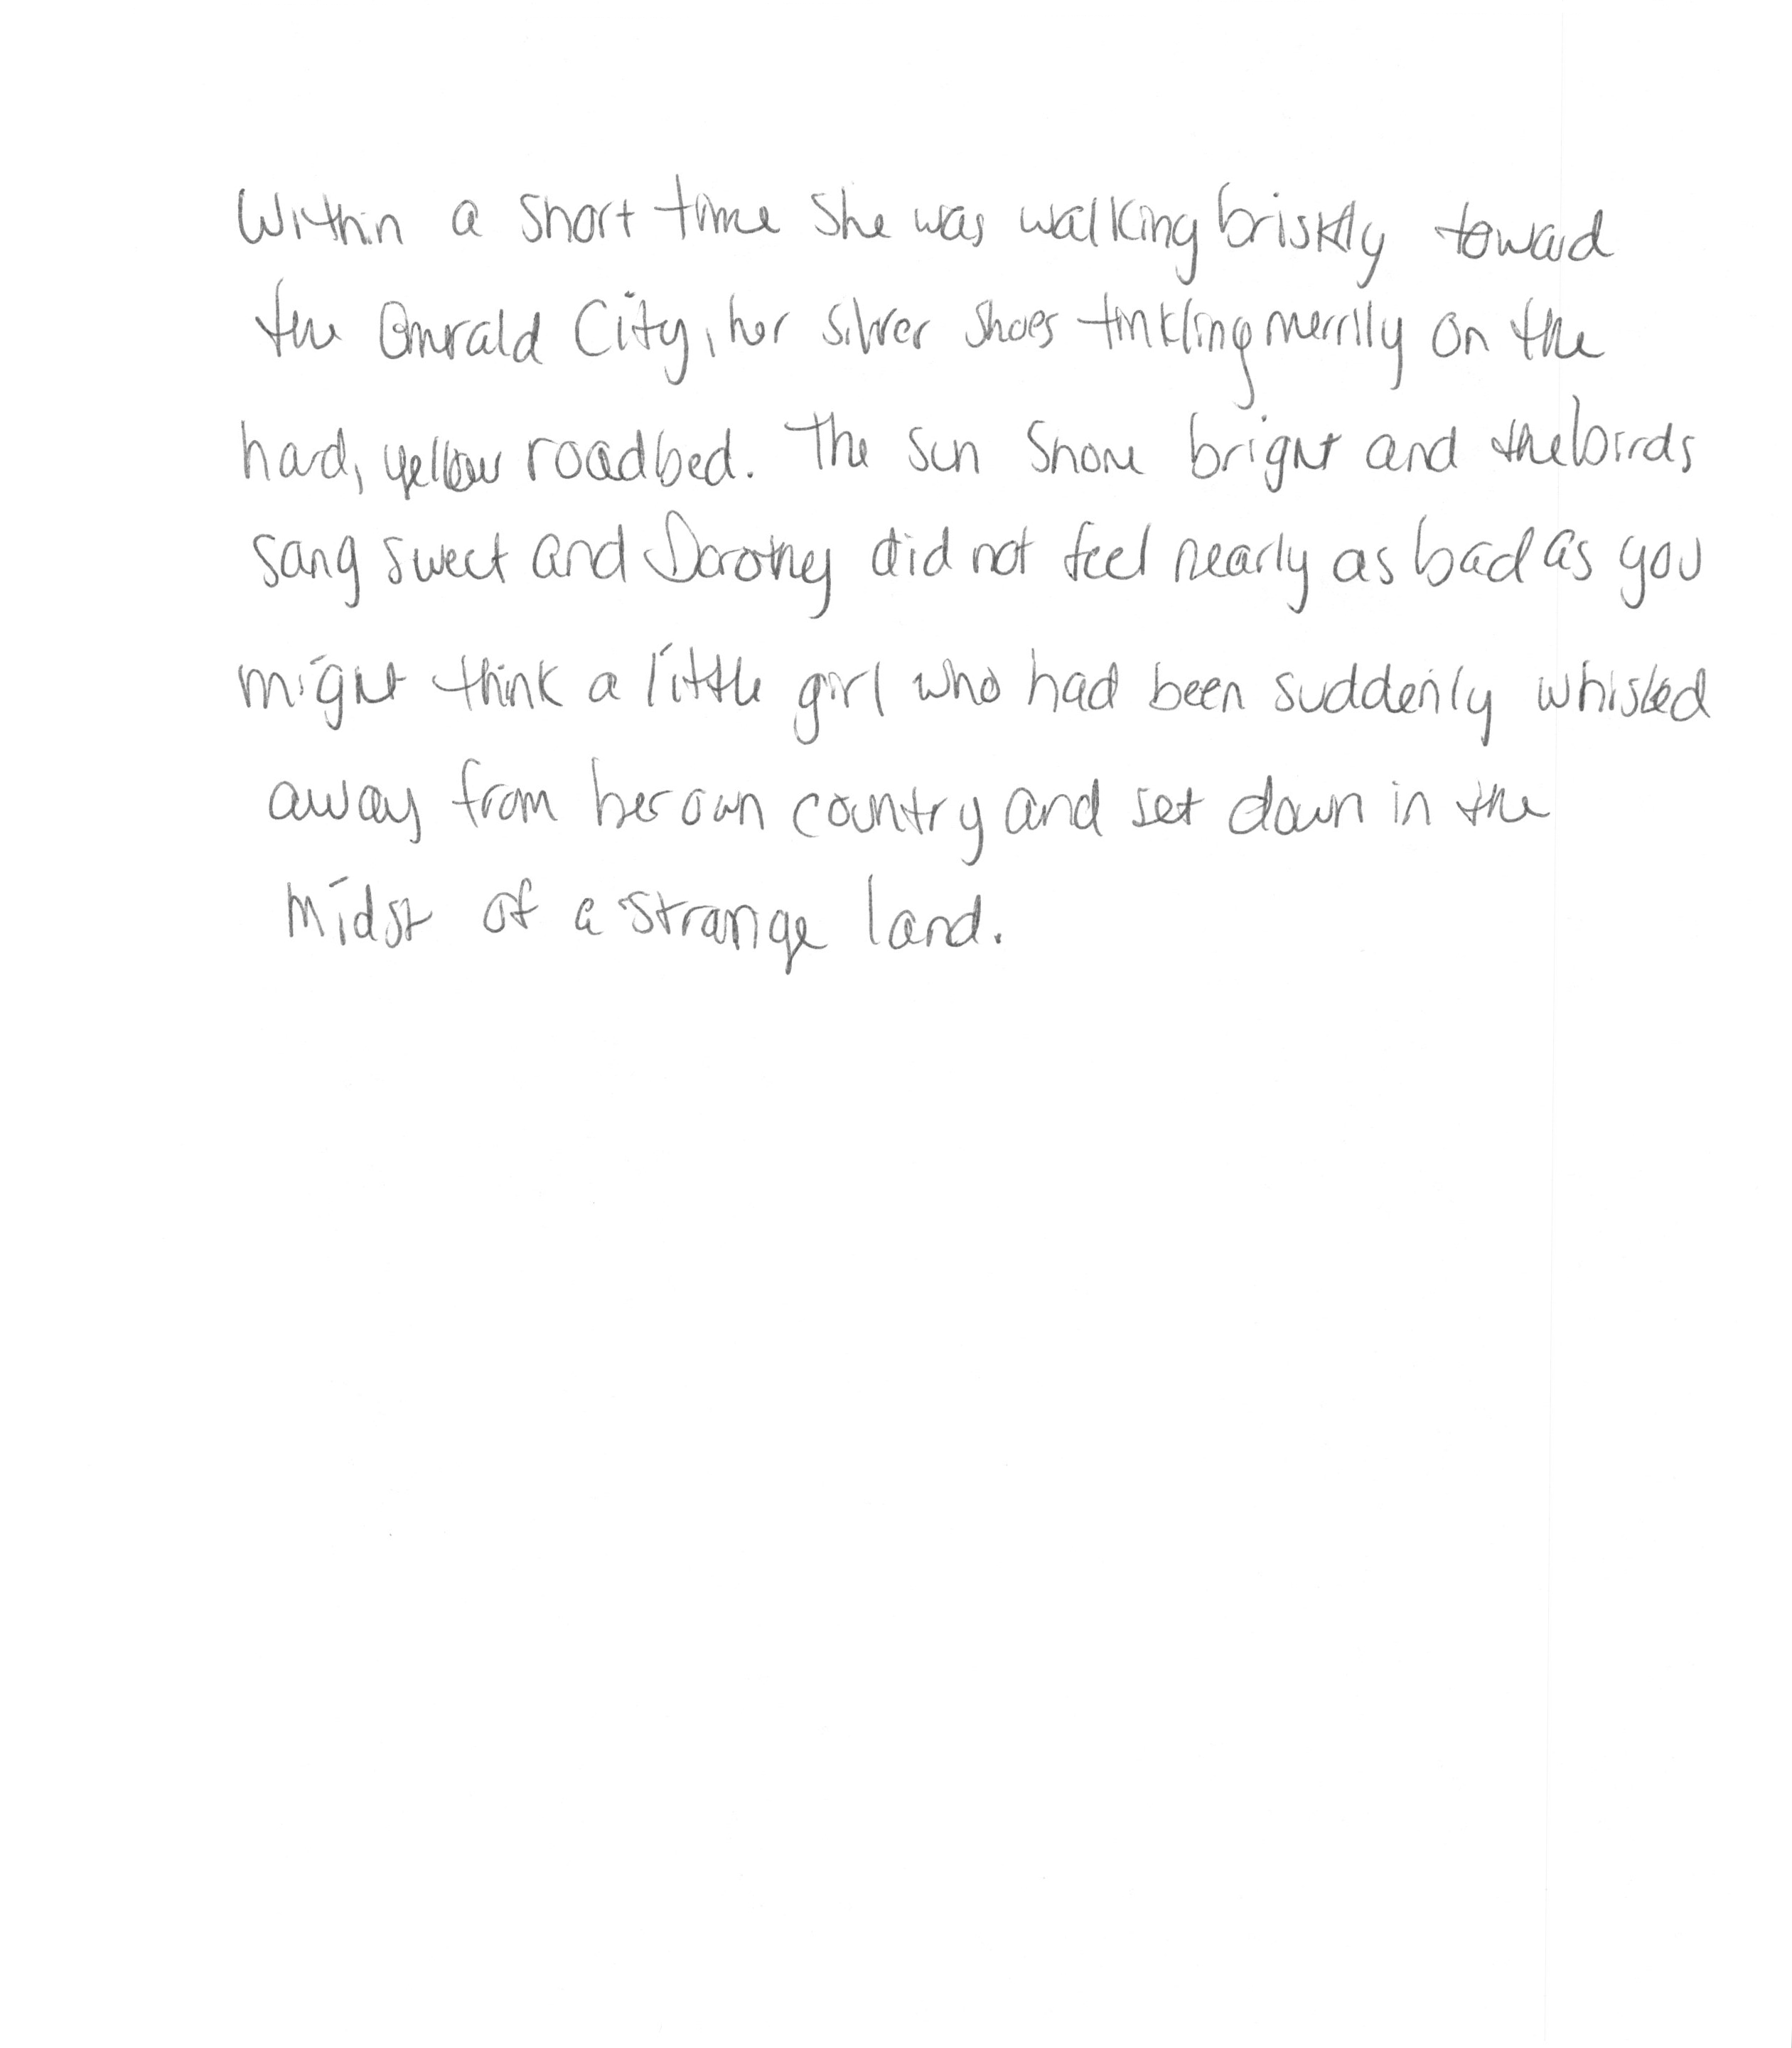 Within a short time she was walking briskly toward
the Emerald City, her silver shoes tinkling merrily on the
hard, yellow roadbed. The sun shone bright and the birds
sang sweet and Dorothy did not feel nearly as bad as you
might think a little girl who had been suddenly whisked
away from her own country and set down in the
midst of a strange land.